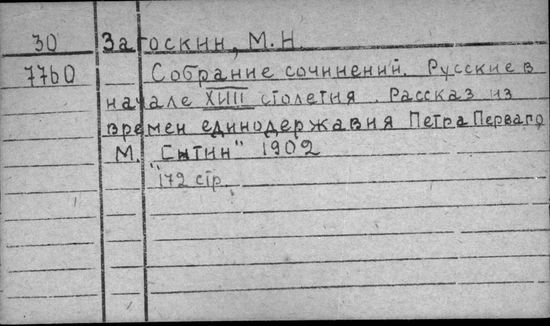 30 Загоскин, М.Н.
7760 Собрание сочинений. Русские в
начале XVIII столетия. Рассказ из
времен единодержавия Петра Первого
М. "Сытин" 1902
172 стр.